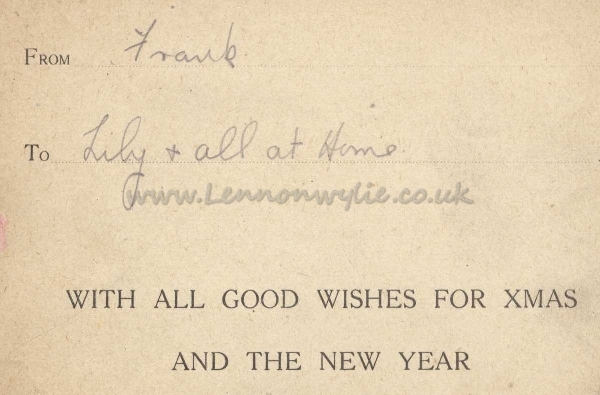 From Frank
To Lily + all at Home
www.Lennonwylie.co.uk
WITH ALL GOOD WISHES FOR XMAS
AND THE NEW YEAR